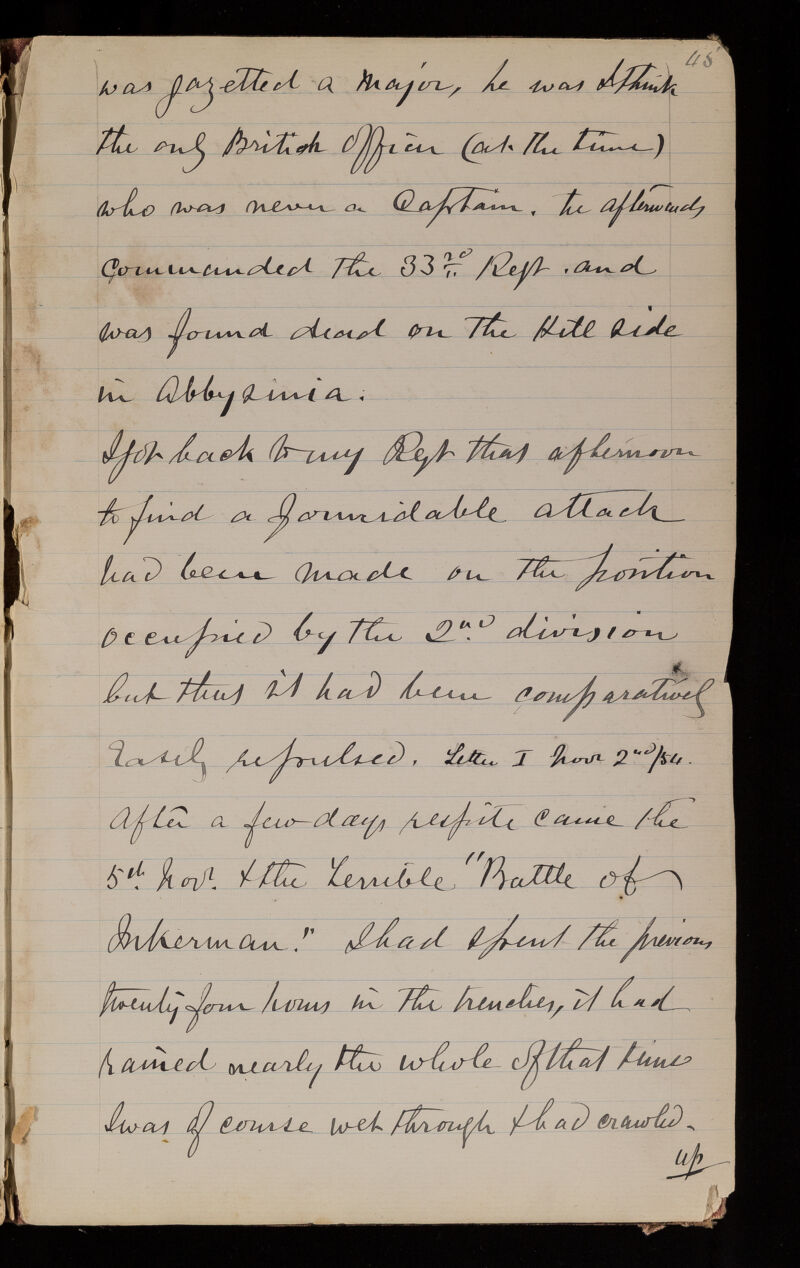 45
was gazetted a Major, he was I think
the only British Officer (at the time)
who was never a Captain. he afterwards
Commanded the 33rd Regt. and
was found dead on the Hill side
in Abbysinia.
I got back to my Regt that afternoon
to find a formidable attack
had been made on the position
occupied by the 2nd. division
but thus it had been comparatively
Easily repulsed. Letter I Novr 2nd/54.
After a few days respite came the
5th. Novr. & the Terrible "Battle of
Inkerman." I had spent the previous
twenty four hours in the trenches, it had
rained nearly the whole of that time
I was of course wet through & had crawled
up